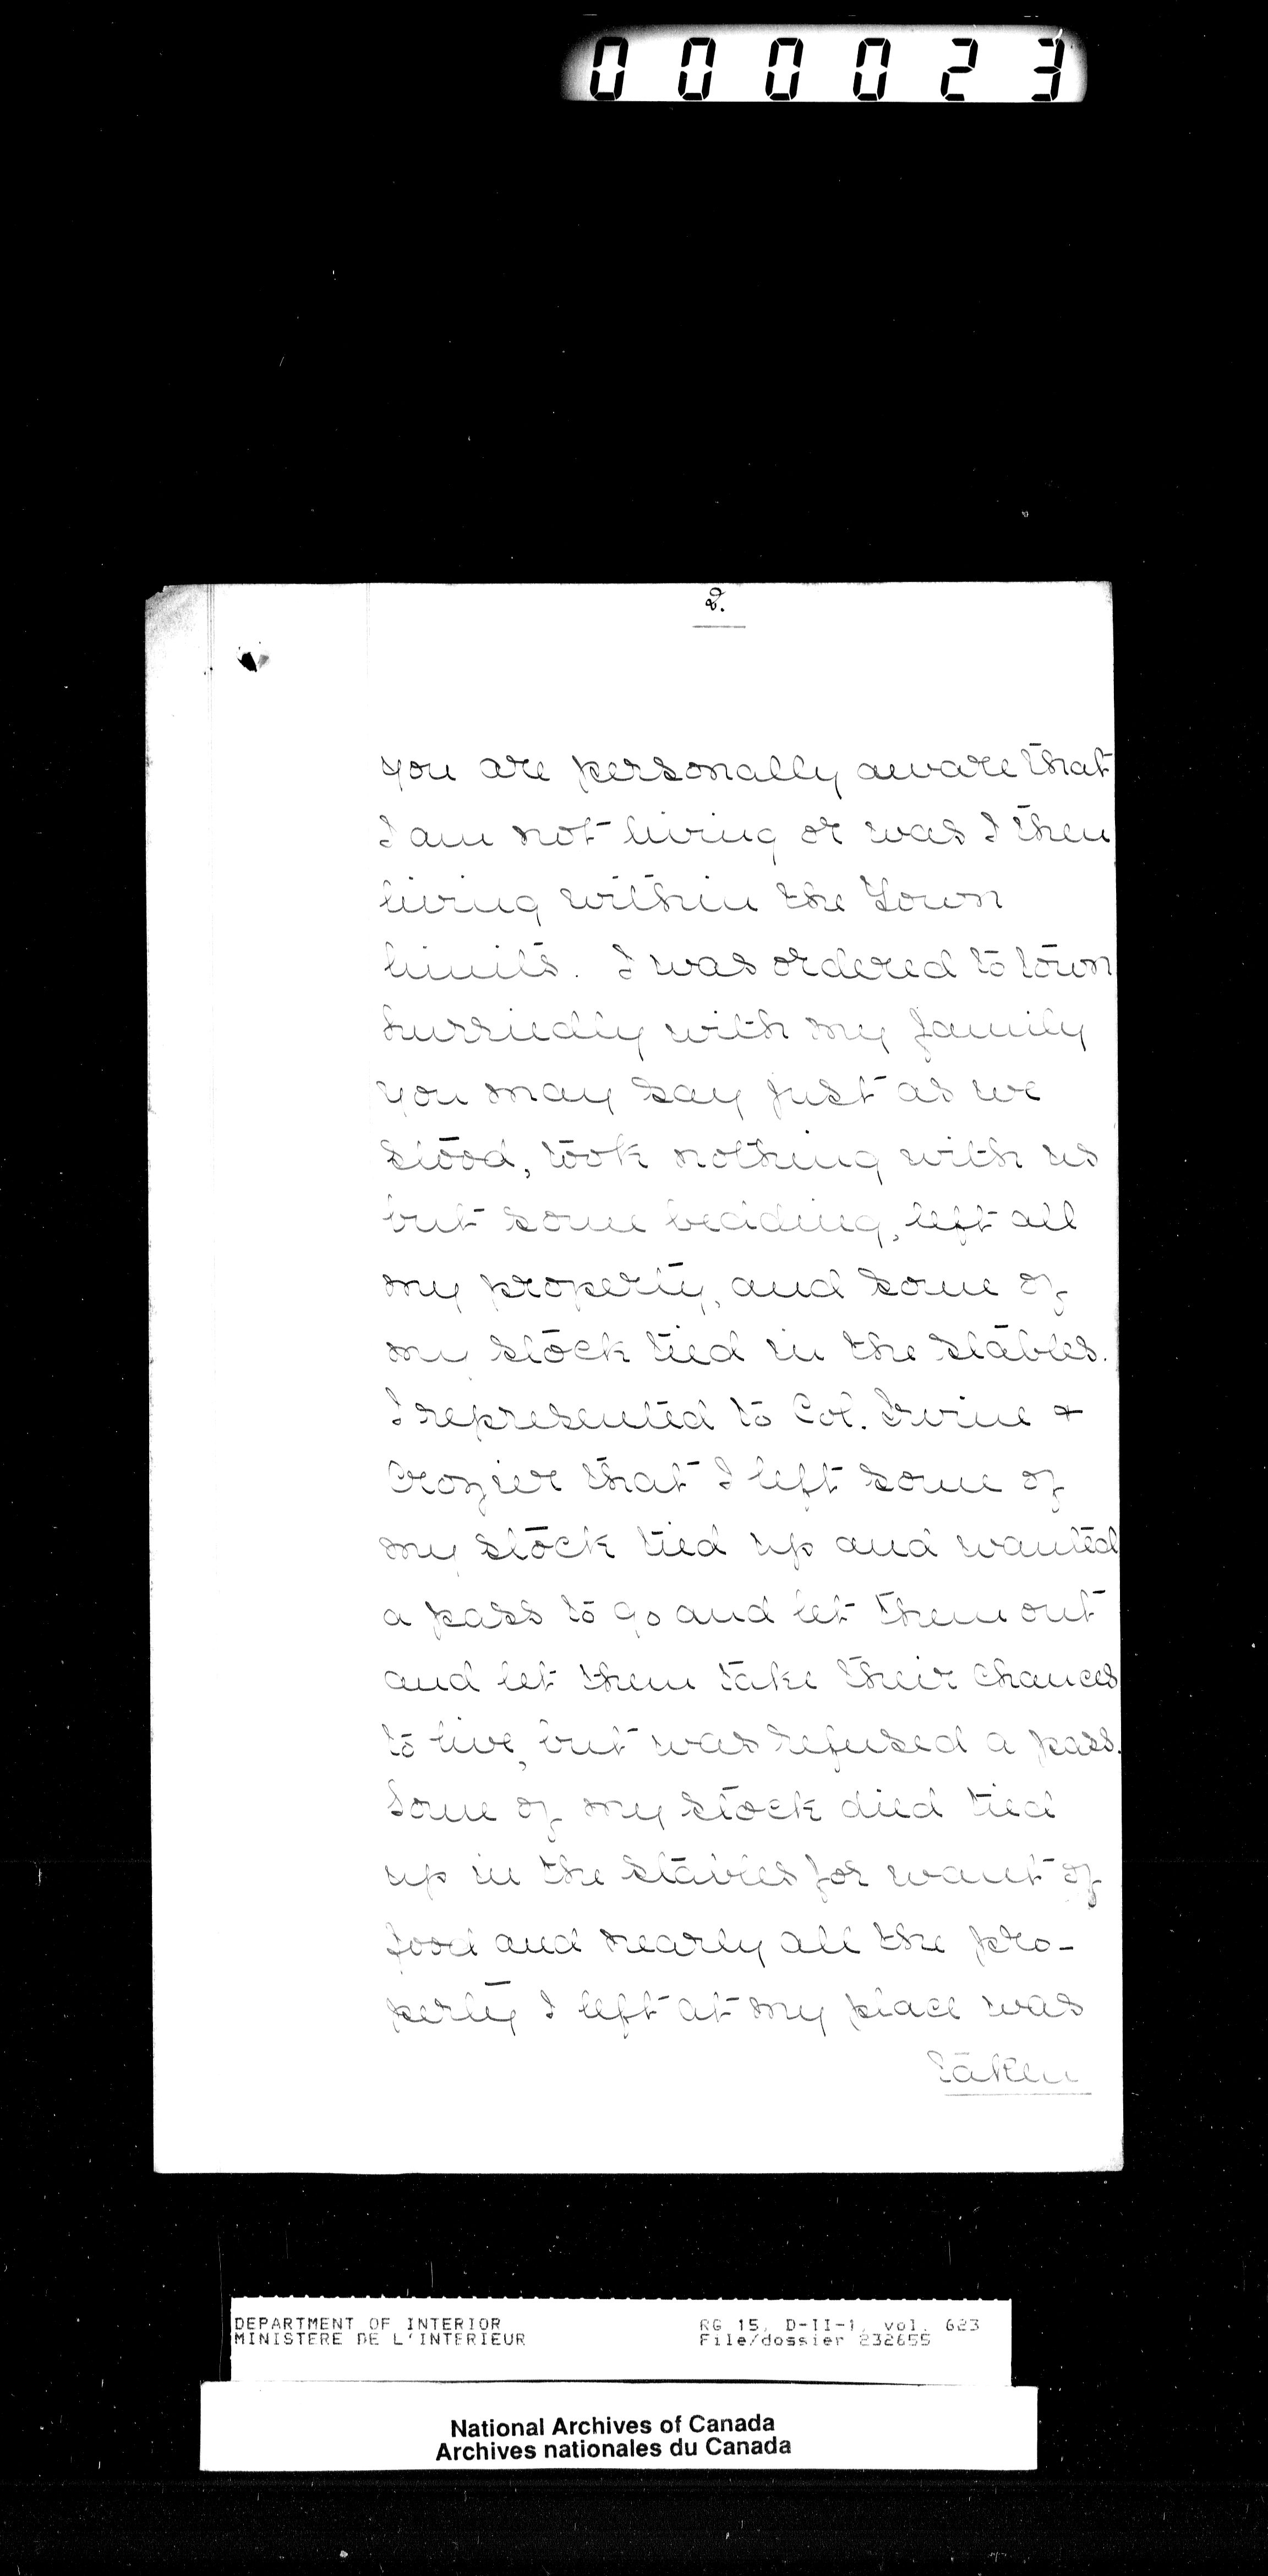 000023
2.
you are personally aware that
I am not living or was I then
living within the Town
limits. I was ordered to town
hurriedly with my family
you may say just as we
stood, took nothing with us
but some bedding, left all
my property, and some of
my stock tied in the stables.
I represented to Col. Irvine &
Crozier that I left some of
my stock tied up and wanted
a pass to go and let them out
and let them take their chances
to live, but was refused a pass.
Some of my stock died tied
up in the stables for want of
food and nearly all the pro-
perty I left at my place was
taken
DEPARTMENT OF INTERIOR RG 15, D-II-1, vol. 623
MINISTERE DE L'INTERIEUR File/dossier 232655
National Archives of Canada
Archives nationales du Canada